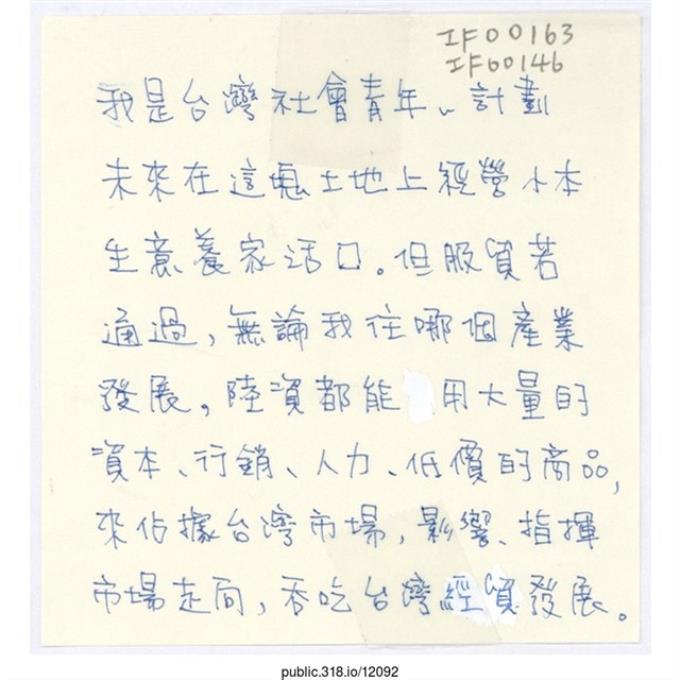 IF00163
IF00146
我是台灣社會青年、計劃
未來在這塊土地上經營小本
生意養家活口。但服貿若
通過，無論我往哪個產業
發展。陸資都能用大量的
資本、行銷、人力、低價的商品，
來佔據台灣市場，影響、指揮
市場走向，吞吃台灣經貿發展。
public.318.io/12092